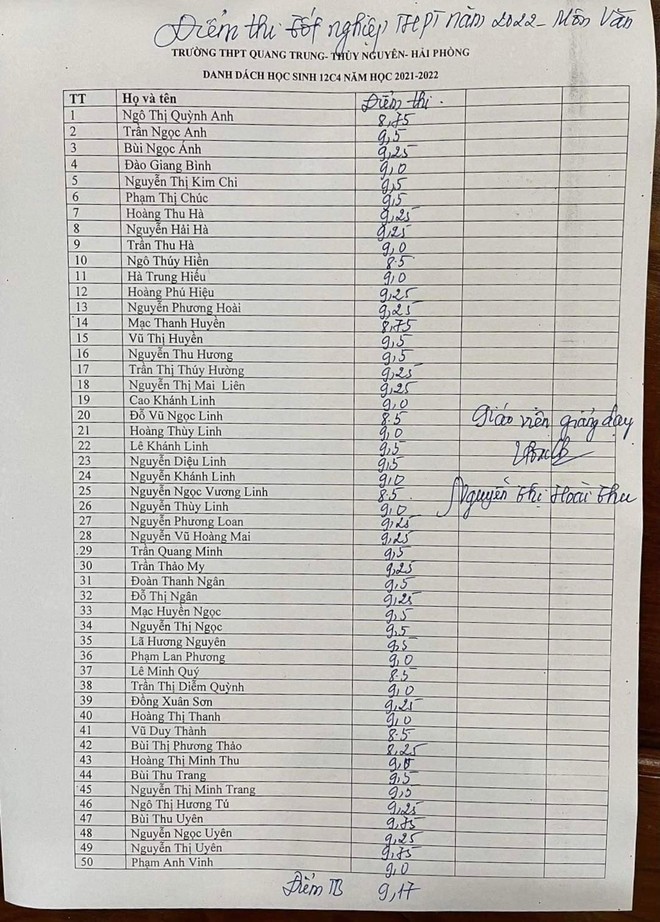 Điểm thi tốt nghiệp THPT năm 2022 - Môn Văn
TRƯỜNG THPT QUANG TRUNG- THỦY NGUYÊN- HẢI PHÒNG
DANH DÁCH HỌC SINH 12C4 NĂM HỌC 2021-2022
TT Họ và tên Điểm thi
1 Ngô Thị Quỳnh Anh 8,75
2 Trần Ngọc Anh 9,5
3 Bùi Ngọc Ánh 9,25
4 Đào Giang Bình 9,0
5 Nguyễn Thị Kim Chi 9,5
6 Phạm Thị Chúc 9,5
7 Hoàng Thu Hà 9,25
8 Nguyễn Hải Hà 9,25
9 Trần Thu Hà 9,0
10 Ngô Thúy Hiền 8.5
11 Hà Trung Hiếu 9,0
12 Hoàng Phú Hiệu 9,25
13 Nguyễn Phương Hoài 9,25
14 Mạc Thanh Huyền 8,75
15 Vũ Thị Huyền 9,5
16 Nguyễn Thu Hương 9,5
17 Trần Thị Thúy Hường 9,25
18 Nguyễn Thị Mai Liên 9,25
19 Cao Khánh Linh 9,0
20 Đỗ Vũ Ngọc Linh 8.5
Giáo viên giảng dạy
21 Hoàng Thùy Linh 9,0
22 Lê Khánh Linh 9,5
23 Nguyễn Diệu Linh 9,5
24 Nguyễn Khánh Linh 9,0
25 Nguyễn Ngọc Vương Linh 8.5
Nguyễn Thị Hoài Thu
26 Nguyễn Thùy Linh 9,0
27 Nguyễn Phương Loan 9,25
28 Nguyễn Vũ Hoàng Mai 9,25
29 Trần Quang Minh 9,5
30 Trần Thảo My 9,25
31 Đoàn Thanh Ngân 9,5
32 Đỗ Thị Ngân 9,25
33 Mạc Huyền Ngọc 9,5
34 Nguyễn Thị Ngọc 9,5
35 Lã Hương Nguyên 9,5
36 Phạm Lan Phương 9,0
37 Lê Minh Quý 8.5
38 Trần Thị Diễm Quỳnh 9,0
39 Đồng Xuân Sơn 9,25
40 Hoàng Thị Thanh 9,0
41 Vũ Duy Thành 8.5
42 Bùi Thị Phương Thảo 8,25
43 Hoàng Thị Minh Thu 9,0
44 Bùi Thu Trang 9,5
45 Nguyễn Thị Minh Trang 9,5
46 Ngô Thị Hương Tú 9,25
47 Bùi Thu Uyên 9,75
48 Nguyễn Ngọc Uyên 9,25
49 Nguyễn Thị Uyên 9,75
50 Phạm Anh Vinh 9,0
Điểm TB 9,17